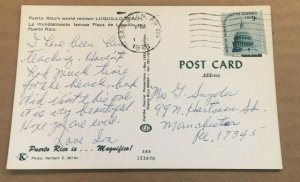 Puerto Rico's world renown LUQUILLO BEACH
La mundialmente famosa Playa de Luquillo
Puerto Rico.
I have been here
teaching. Haven't
had much time
for the beach, but
did visit this one,
it is very beautiful
Hope you are well.
Love Ira
Puerto Rico is ... Magnifico!
Photo: Herbert E.
SAN JUAN, P.R.
PM
POST CARD
Address
Mr G. Snyder
99 N. Hartman St
Manchester
Pa. 17345
345
131470